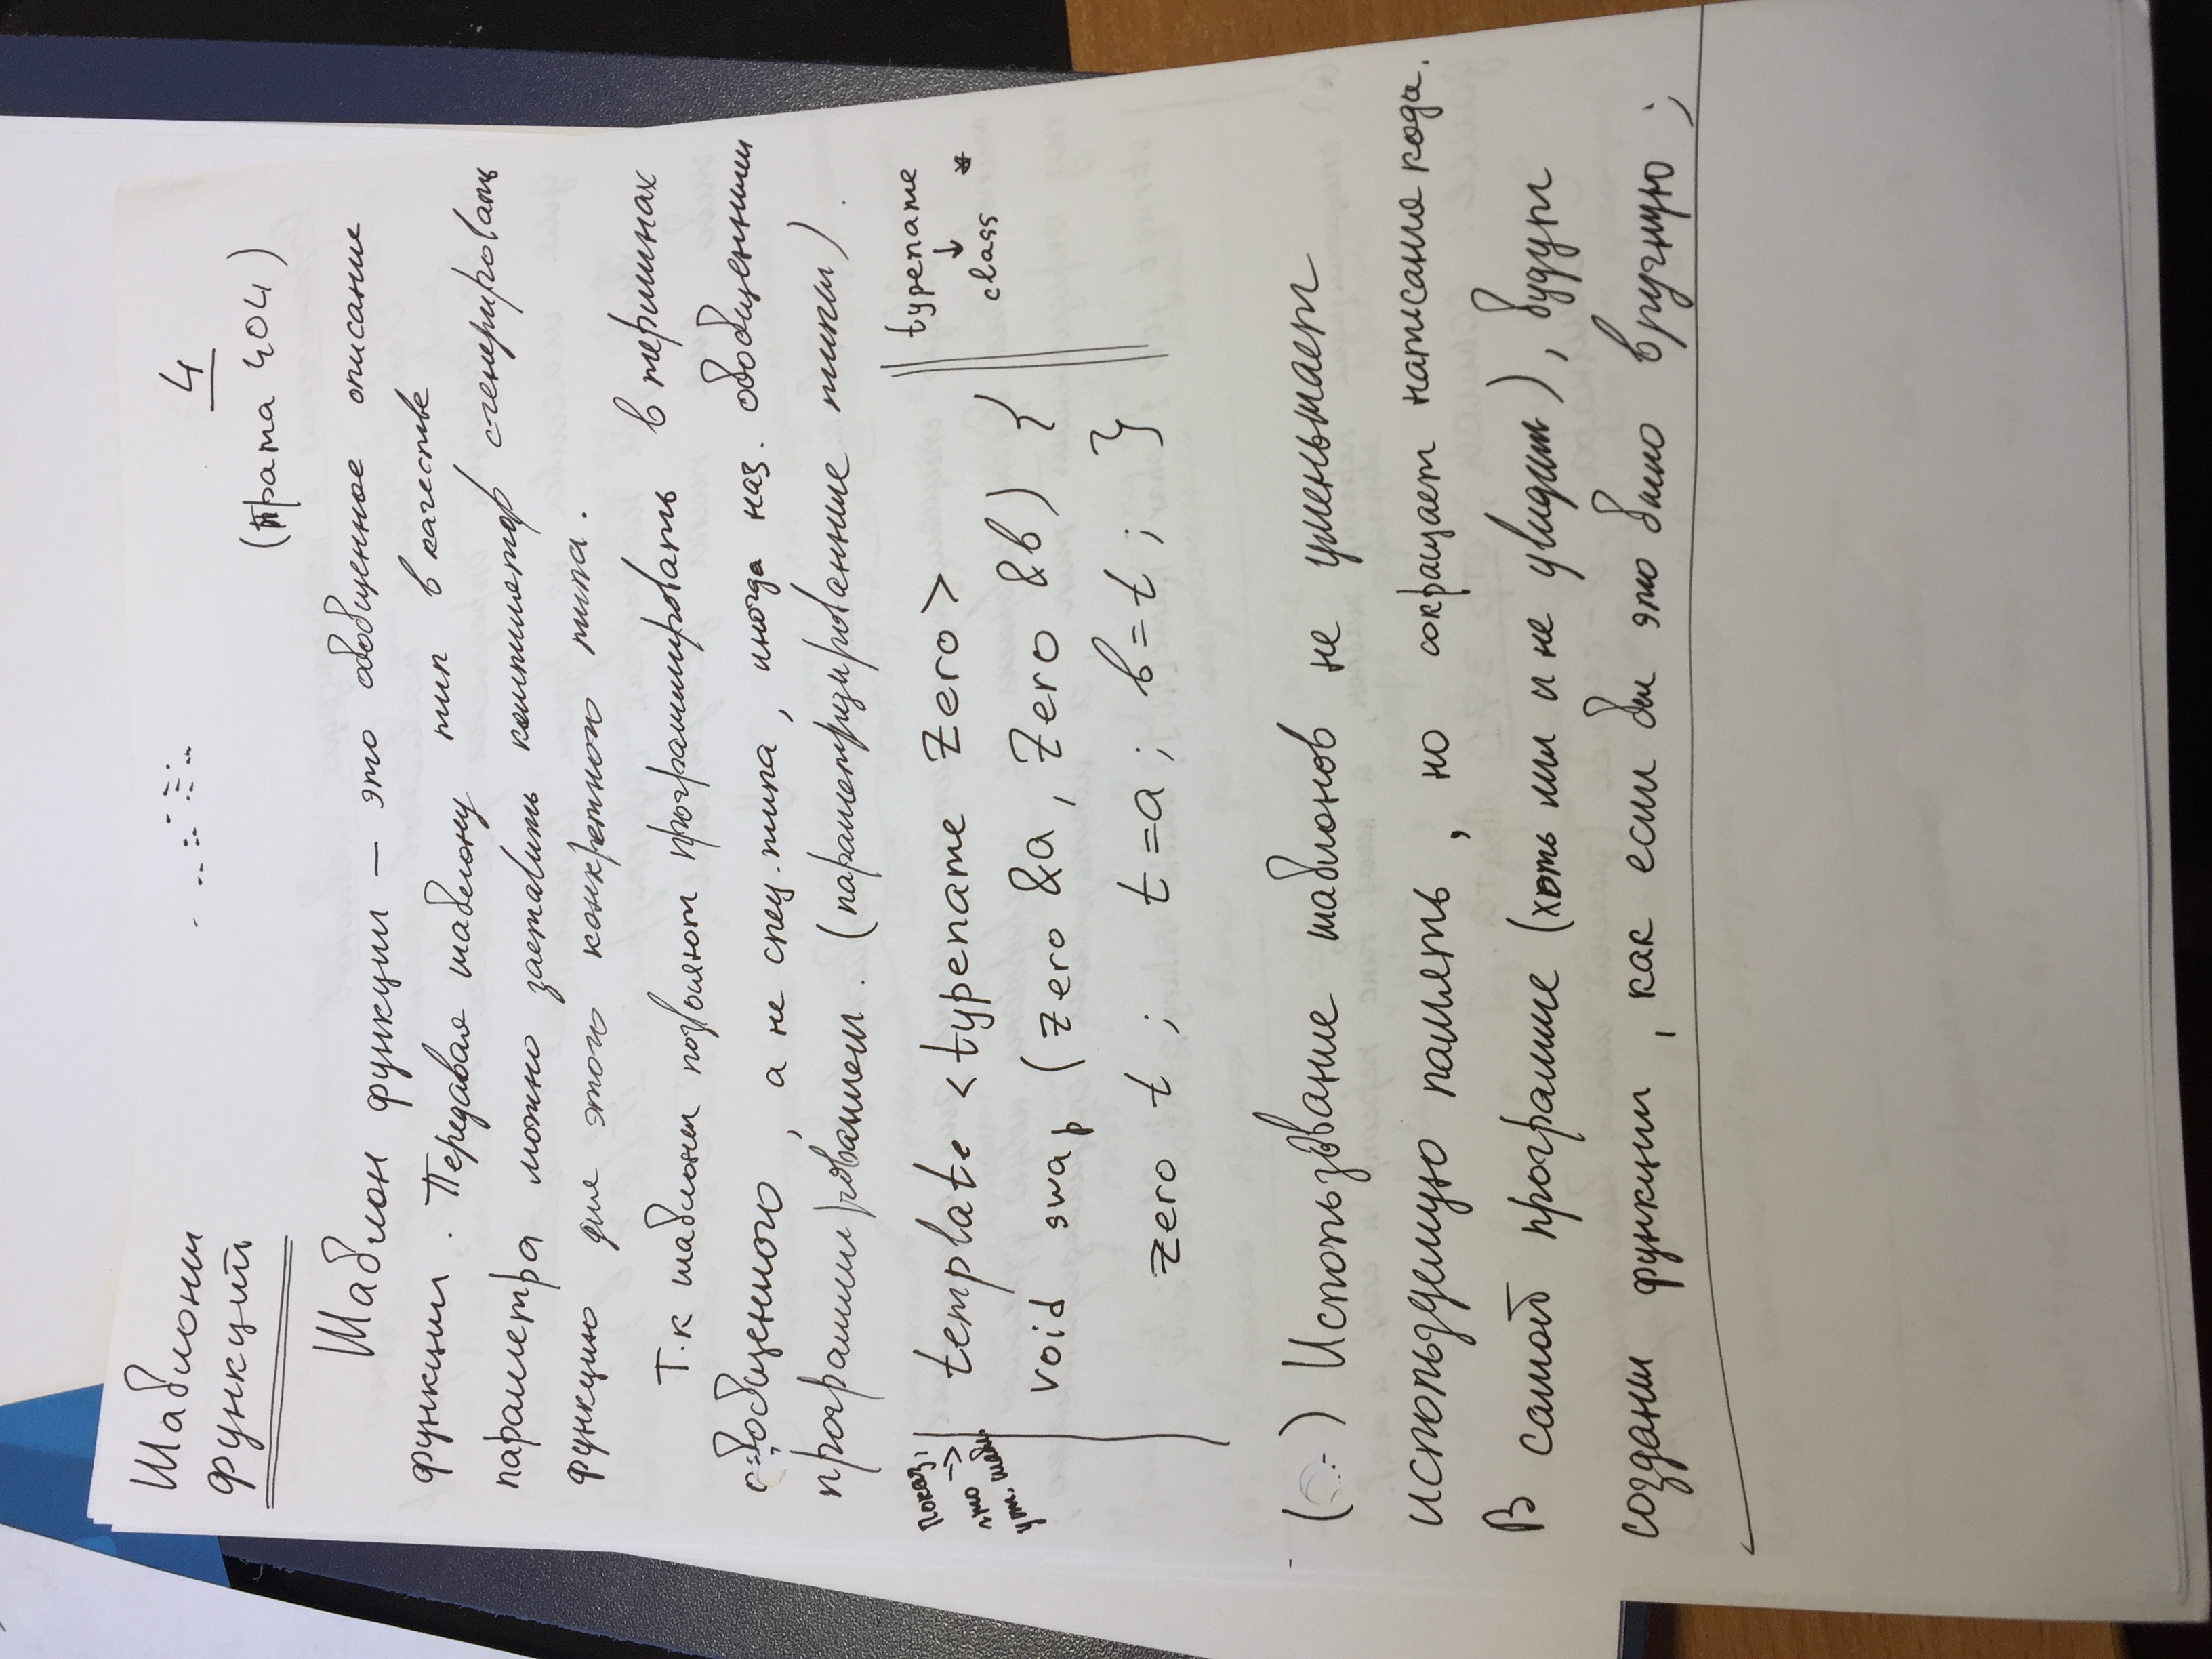 Шаблоны
функций
4
(Прата 404)
Шаблон функции — это обобщенное описание
функции. Передавая шаблону тип в качестве
параметра можно заставить компилятор сгенерировать
функцию для этого конкретного типа.
Т.к шаблоны позволяют программировать в терминах
обобщенного, а не спец. типа, иногда наз. обобщенными
программированием. (параметризированные типы).
Показ,
что →
уст. шабл.
template <typename Zero>
void swap (Zero &a, Zero &b) {
zero t; t=a; b=t; }
typename
↓
class *
( ) Использование шаблонов не уменьшает
используемую память, но сокращает написания кода.
В самой программе (хоть мы и не увидим), будут
созданы функции, как если бы это было вручную;